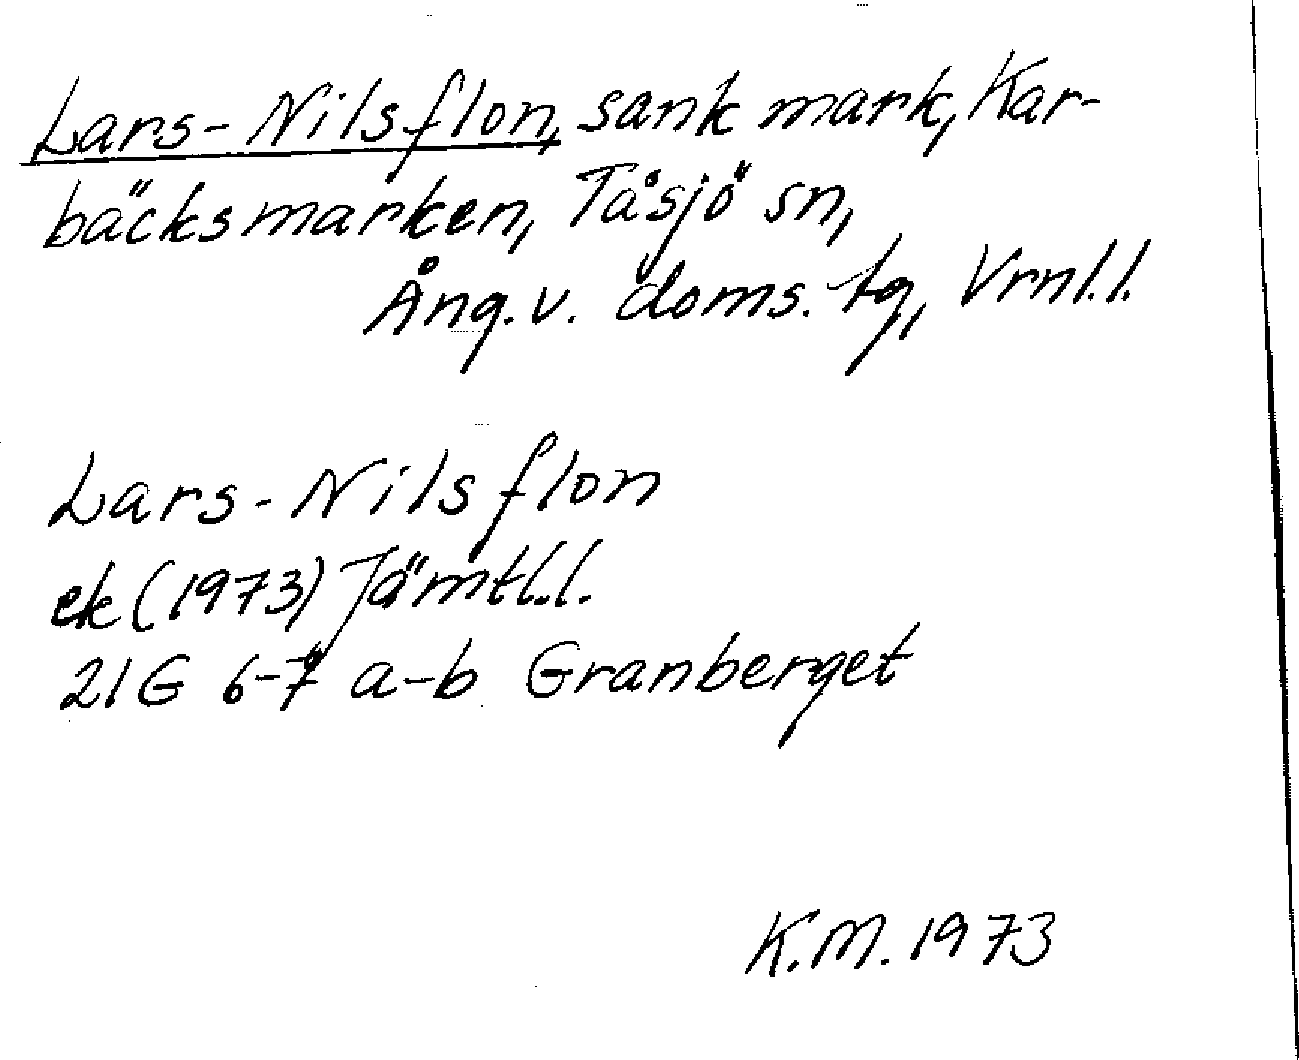 Lars-Nilsflon, sank mark, Kar-
bäcksmarken, Tåsjö sn,
Ång.v. doms. tg, Vrnl.l.
Lars-Nilsflon
ek (1973) Jämtl.l.
21G 6-7 a-b Granberget
K.M. 1973